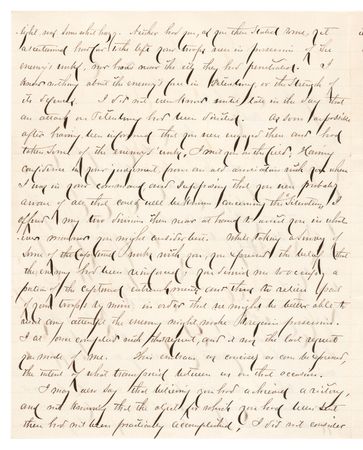 light, and somewhat hazy. Neither had you, as you then stated to me, yet
ascertained how far to the left your troops were in possession of the
enemy's works, nor how near the city they had penetrated. I
knew nothing about the enemy's force in Petersburg or the strength of
its defences. I did not even know until late in the day that
an attack on Petersburg had been directed. As soon as possible
after having been informed that you were engaged there and had
taken some of the enemy's works, I met you on the field. Having
confidence in your judgment from an old association with you when
I was in your command and supposing that you were probably
aware of all that could well be known concerning the situation, I
offered my two divisions then near at hand to assist you in what
ever manner you might consider best. While taking a survey of
some of the captured works with you, you expressed the belief that
the enemy had been reinforced; you desired me to occupy a
portion of the captured entrenchments and thus to relieve part
of your troops by mine, in order that we might be better able to
resist any attempt the enemy might make to regain possession.
I at once complied with that request, and it was the last request
you made of me. This embraces, as concisely as can be expressed,
the extent of what transpired between us on that occasion.
I may also say that believing you had achieved a victory,
and not knowing that the object for which you had been sent
there had not been practically accomplished, I did not consider